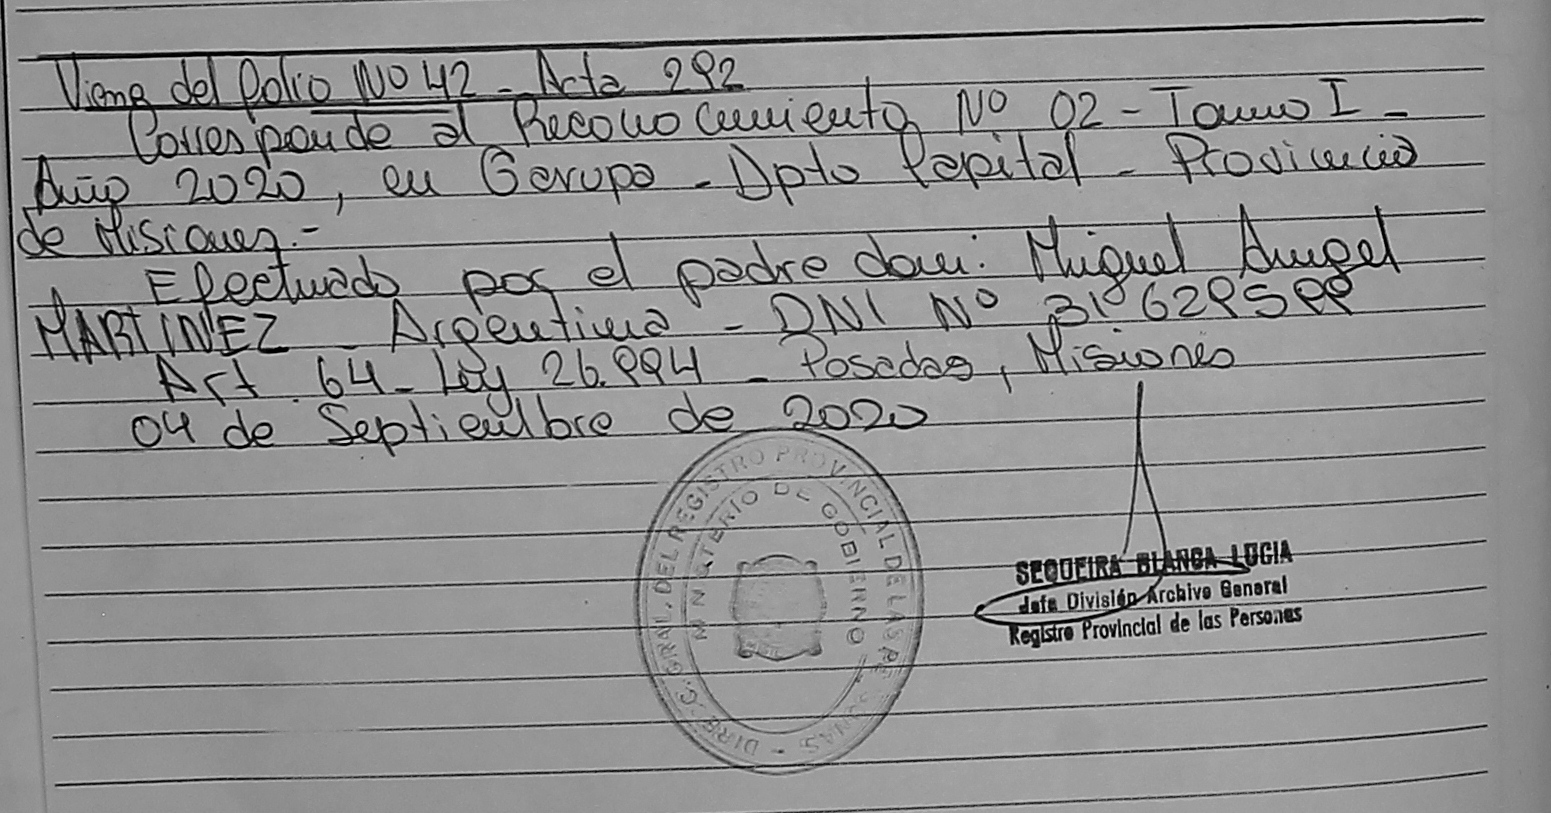 Viene del folio Nº 42 - Acta 292
Corresponde al Reconocimiento Nº 02 - Tomo I -
Año 2020, en Garupa - Dpto Capital - Provincia
de Misiones.-
Efectuado por el padre don: Miguel Angel
MARTINEZ - Argentina - DNI Nº 31.629599
Art. 64 - Ley 26.994 - Posadas, Misiones
04 de Septiembre de 2020
DIREC. GRAL. DEL REGISTRO PROVINCIAL DE LAS PERSONAS
MINISTERIO DE GOBIERNO
SEQUEIRA BLANCA LUCIA
Jefa División Archivo General
Registro Provincial de las Personas